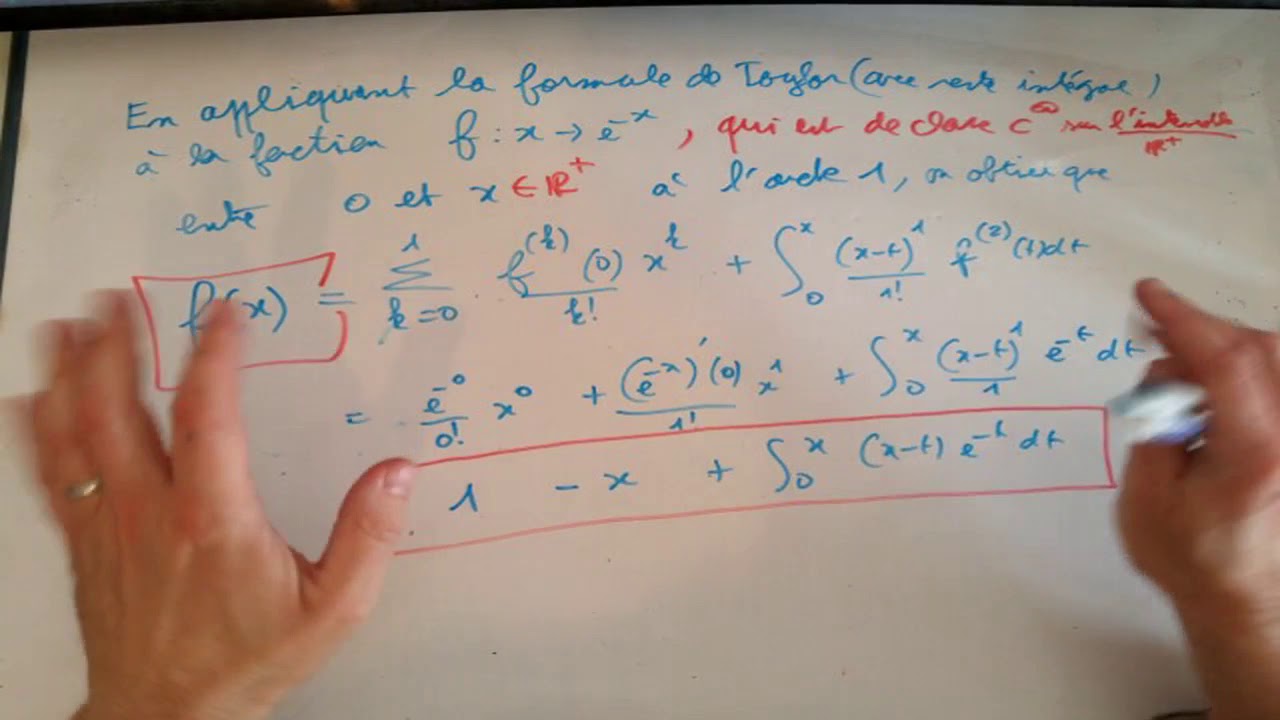 En appliquant la formule de Taylor (avec reste intégral)
à la fonction f : x → e^{-x}, qui est de classe C^∞ sur l'intervalle ℝ⁺
entre 0 et x ∈ ℝ⁺ à l'ordre 1, on obtient que
f(x) = ∑_{k=0}^{1} \frac{f^{(k)}(0)}{k!} x^k + ∫_0^x \frac{(x-t)^1}{1!} f^{(2)}(t)dt
= \frac{e^{-0}}{0!} x^0 + \frac{(e^{-x})'(0)}{1!} x^1 + ∫_0^x \frac{(x-t)^1}{1} e^{-t} dt
1 - x + ∫_0^x (x-t) e^{-t} dt